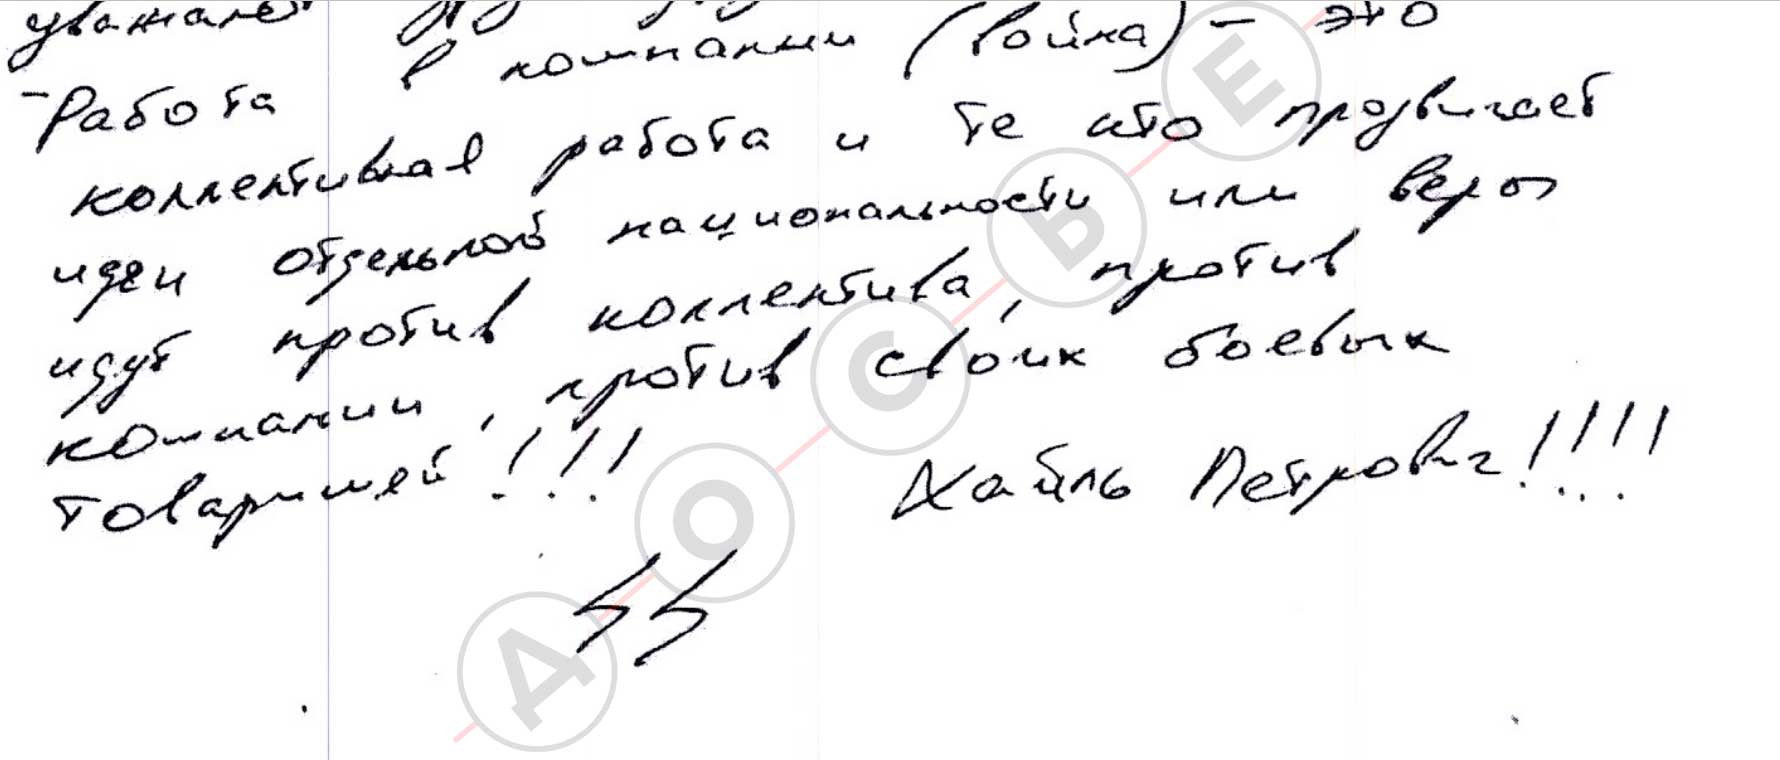 уважает
- Работа в компании (война) - это
коллективная работа и те кто продвигает
идеи отдельной национальности или веры
идут против коллектива, против
компании, против своих боевых
товарищей!!! Хайль Петрович!!!!
ᛋᛋ
ДОСЬЕ